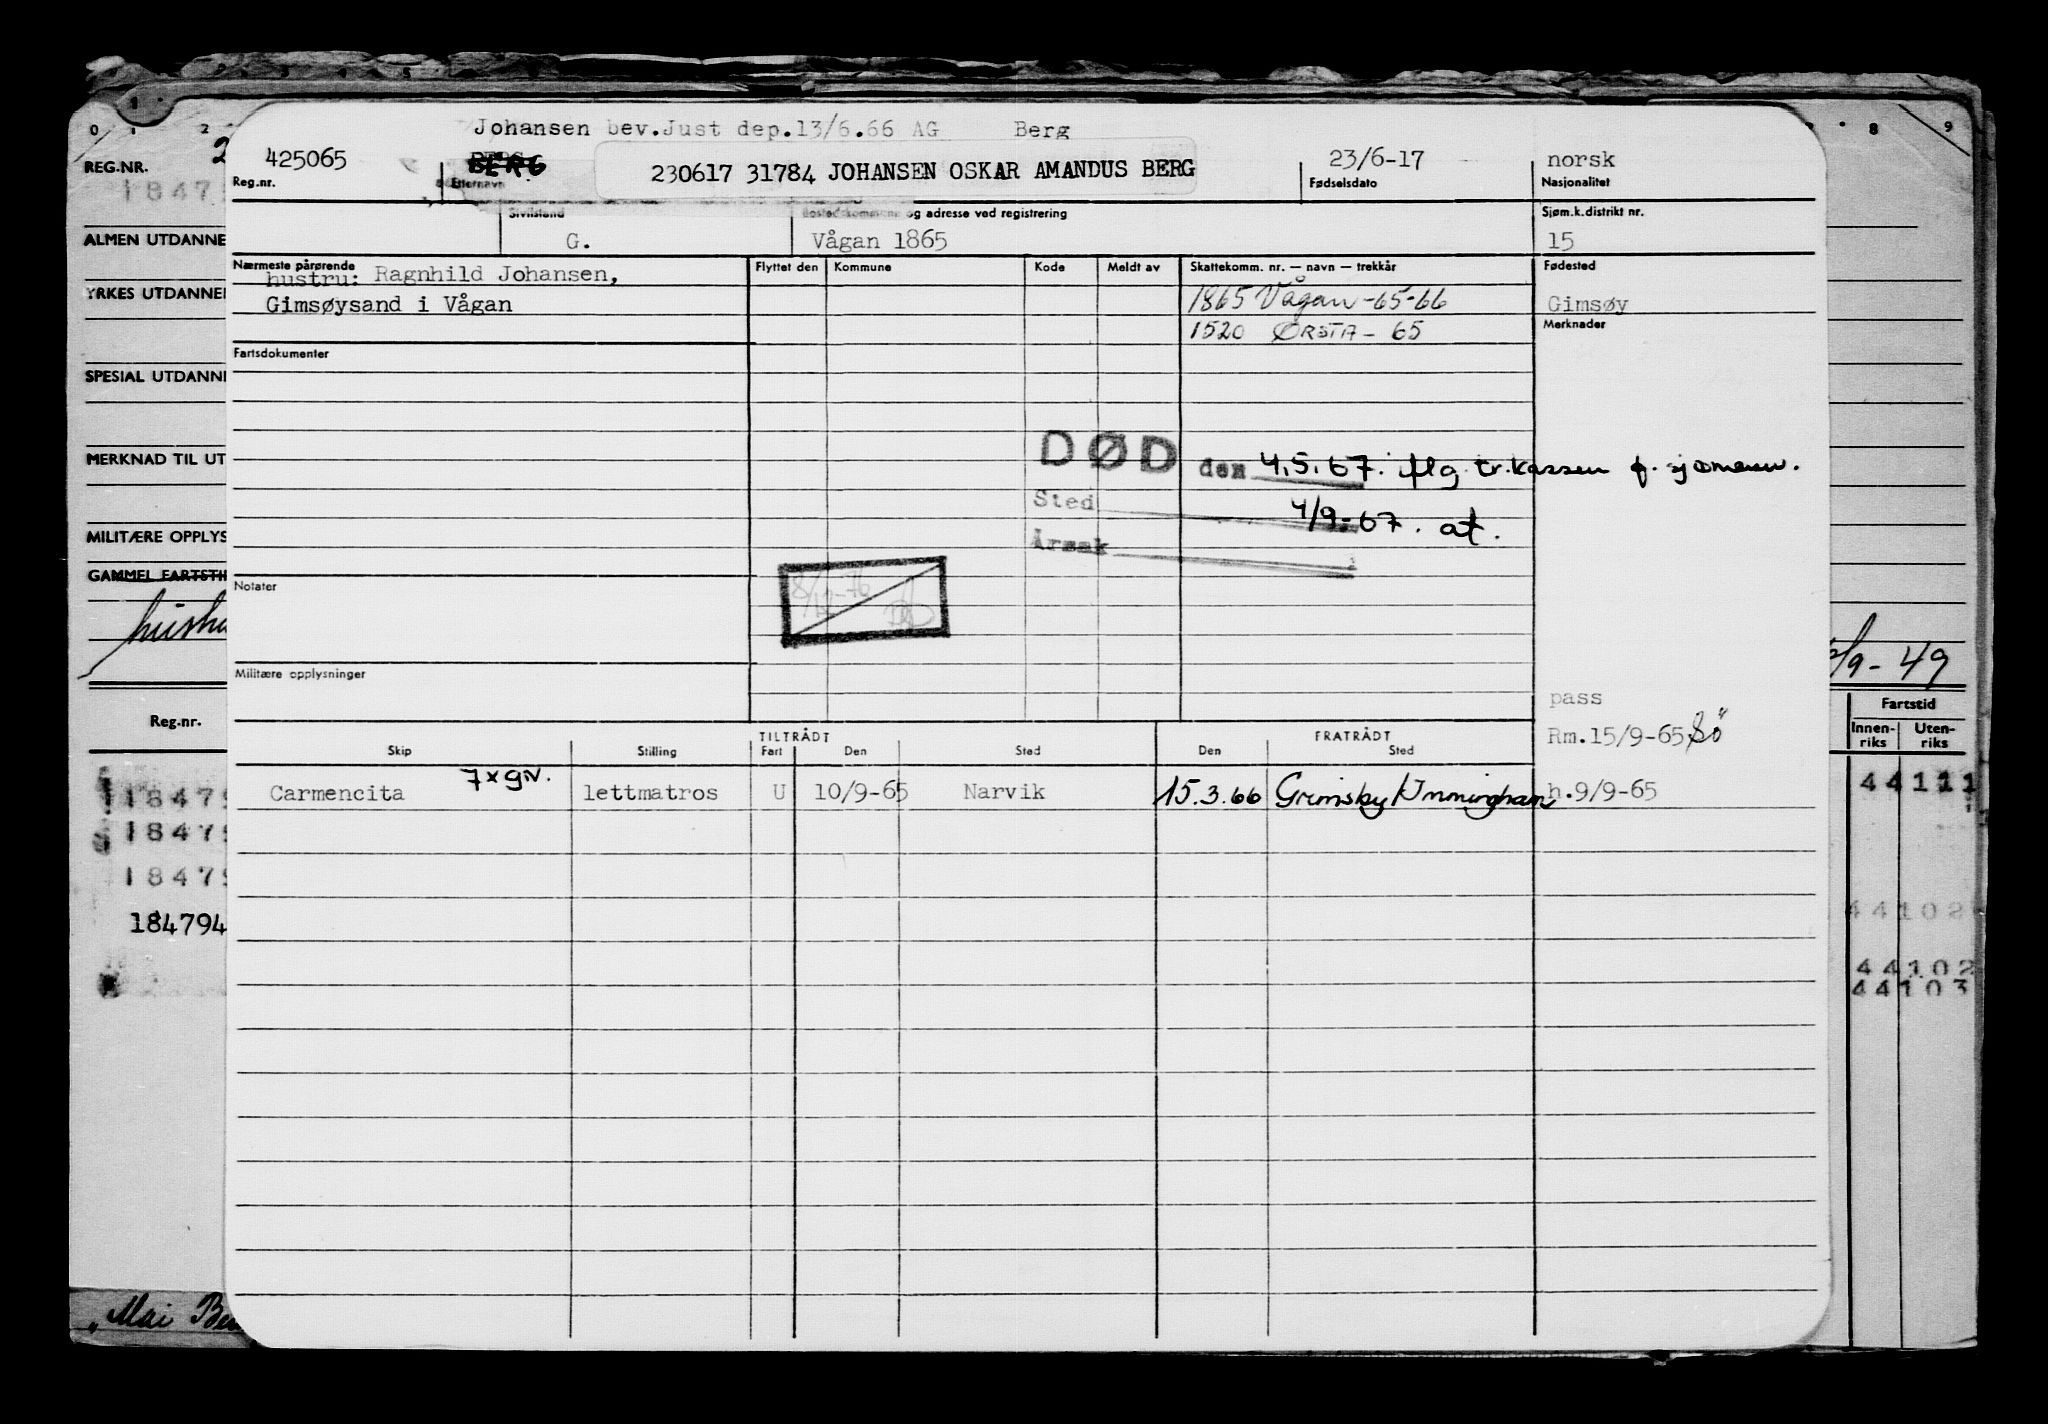 Johansen bev.Just dep.13/6.66 AG Berg
425065 BERG 230617 31784 JOHANSEN OSKAR AMANDUS BERG 23/6-17 norsk
Reg.nr. Etternavn Fødselsdato Nasjonalitet
Sivilstand Bostedskommune og adresse ved registrering Sjøm.k.distrikt nr.
G. Vågan 1865 15
Nærmeste pårørende Flyttet den Kommune Kode Meldt av Skattekomm. nr. — navn — trekkår Fødested
hustru: Ragnhild Johansen,
Gimsøysand i Vågan 1865 Vågan -65-66 Gimsøy
1520 ØRSTA - 65 Merknader
Fartsdokumenter
DØD den 4.5.67. iflg tr.kassen f. sjømenn.
Sted 4/9-67. at.
Årsak
8/12-76
Notater
Militære opplysninger
pass
TILTRÅDT FRATRÅDT Rm.15/9-65
Skip Stilling Fart Den Sted Den Sted
Carmencita 7x gN. lettmatros U 10/9-65 Narvik 15.3.66 Grimsby/Immingham h.9/9-65
0 1 2 3 4 5
8 9
REG.NR. 2
18479
ALMEN UTDANNE
YRKES UTDANNE
SPESIAL UTDANN
MERKNAD TIL UT
MILITÆRE OPPLYS
GAMMEL FARTSTI
hushu
/9-49
Reg.nr. Fartstid
Innen-riks Uten-riks
18479 44111
18479
18479
184794 44102
44102
44103
"Mai Be